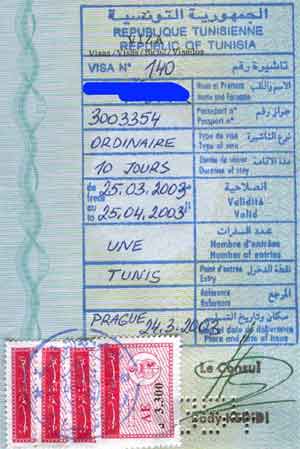 الجمهورية التونسية
REPUBLIQUE TUNISIENNE
REPUBLIC OF TUNISIA
VIZA
VISA N° 140 تأشيرة رقم
الاسم واللقب
Nom et Prénom
Name and Surname
3003354 جواز رقم
Passeport n°
Passport n°
ORDINAIRE نوع التأشيرة
Type de visa
Type of visa
10 JOURS مدة الاقامة
Durée de séjour
Duration of stay
du from 25.03.2003 الصلاحية
au to 25.04.2003 Validité
Valid
عدد السفرات
UNE Nombre d'entrées
Number of entries
نقطة الدخول
TUNIS Point d'entrée
Entry
المرجع
Référence
Reference
مكان وتاريخ
PRAGUE 24.3.2003 date de délivrance
Place and date of issue
Le Consul
AE 3,300